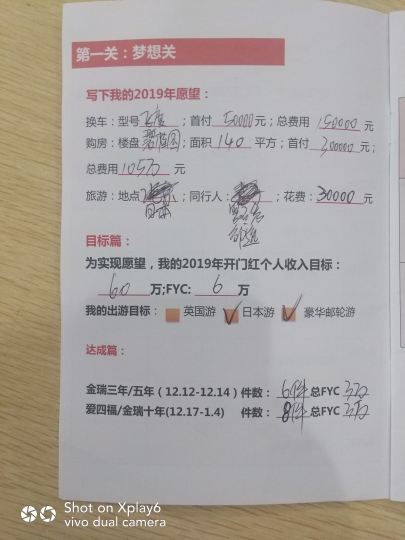 第一关：梦想关
写下我的2019年愿望：
换车：型号飞度；首付50000元；总费用150000元
购房：楼盘碧桂园；面积140平方；首付300000元；
总费用105万元
旅游：地点日本；同行人：；花费：30000元
目标篇：
为实现愿望，我的2019年开门红个人收入目标：
60万;FYC: 6万
我的出游目标： 英国游 日本游 豪华邮轮游
达成篇：
金瑞三年/五年（12.12-12.14）件数：6件总FYC 3万
爱四福/金瑞十年(12.17-1.4) 件数：8件总FYC 3万
Shot on Xplay6
vivo dual camera